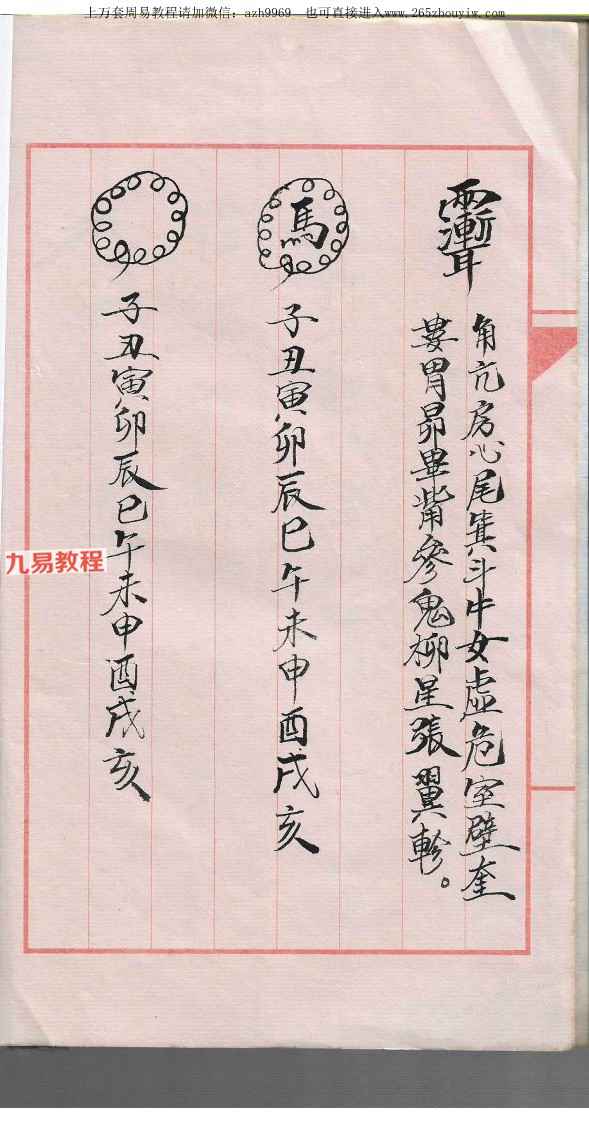 上万套周易教程请加微信：azh9969 也可直接进入www.265zhouyiw.com
角亢房心尾箕斗牛女虛危室壁奎
婁胃昴畢觜參鬼柳星張翼軫。
馬
子丑寅卯辰巳午未申酉戌亥
子丑寅卯辰巳午未申酉戌亥
九易教程